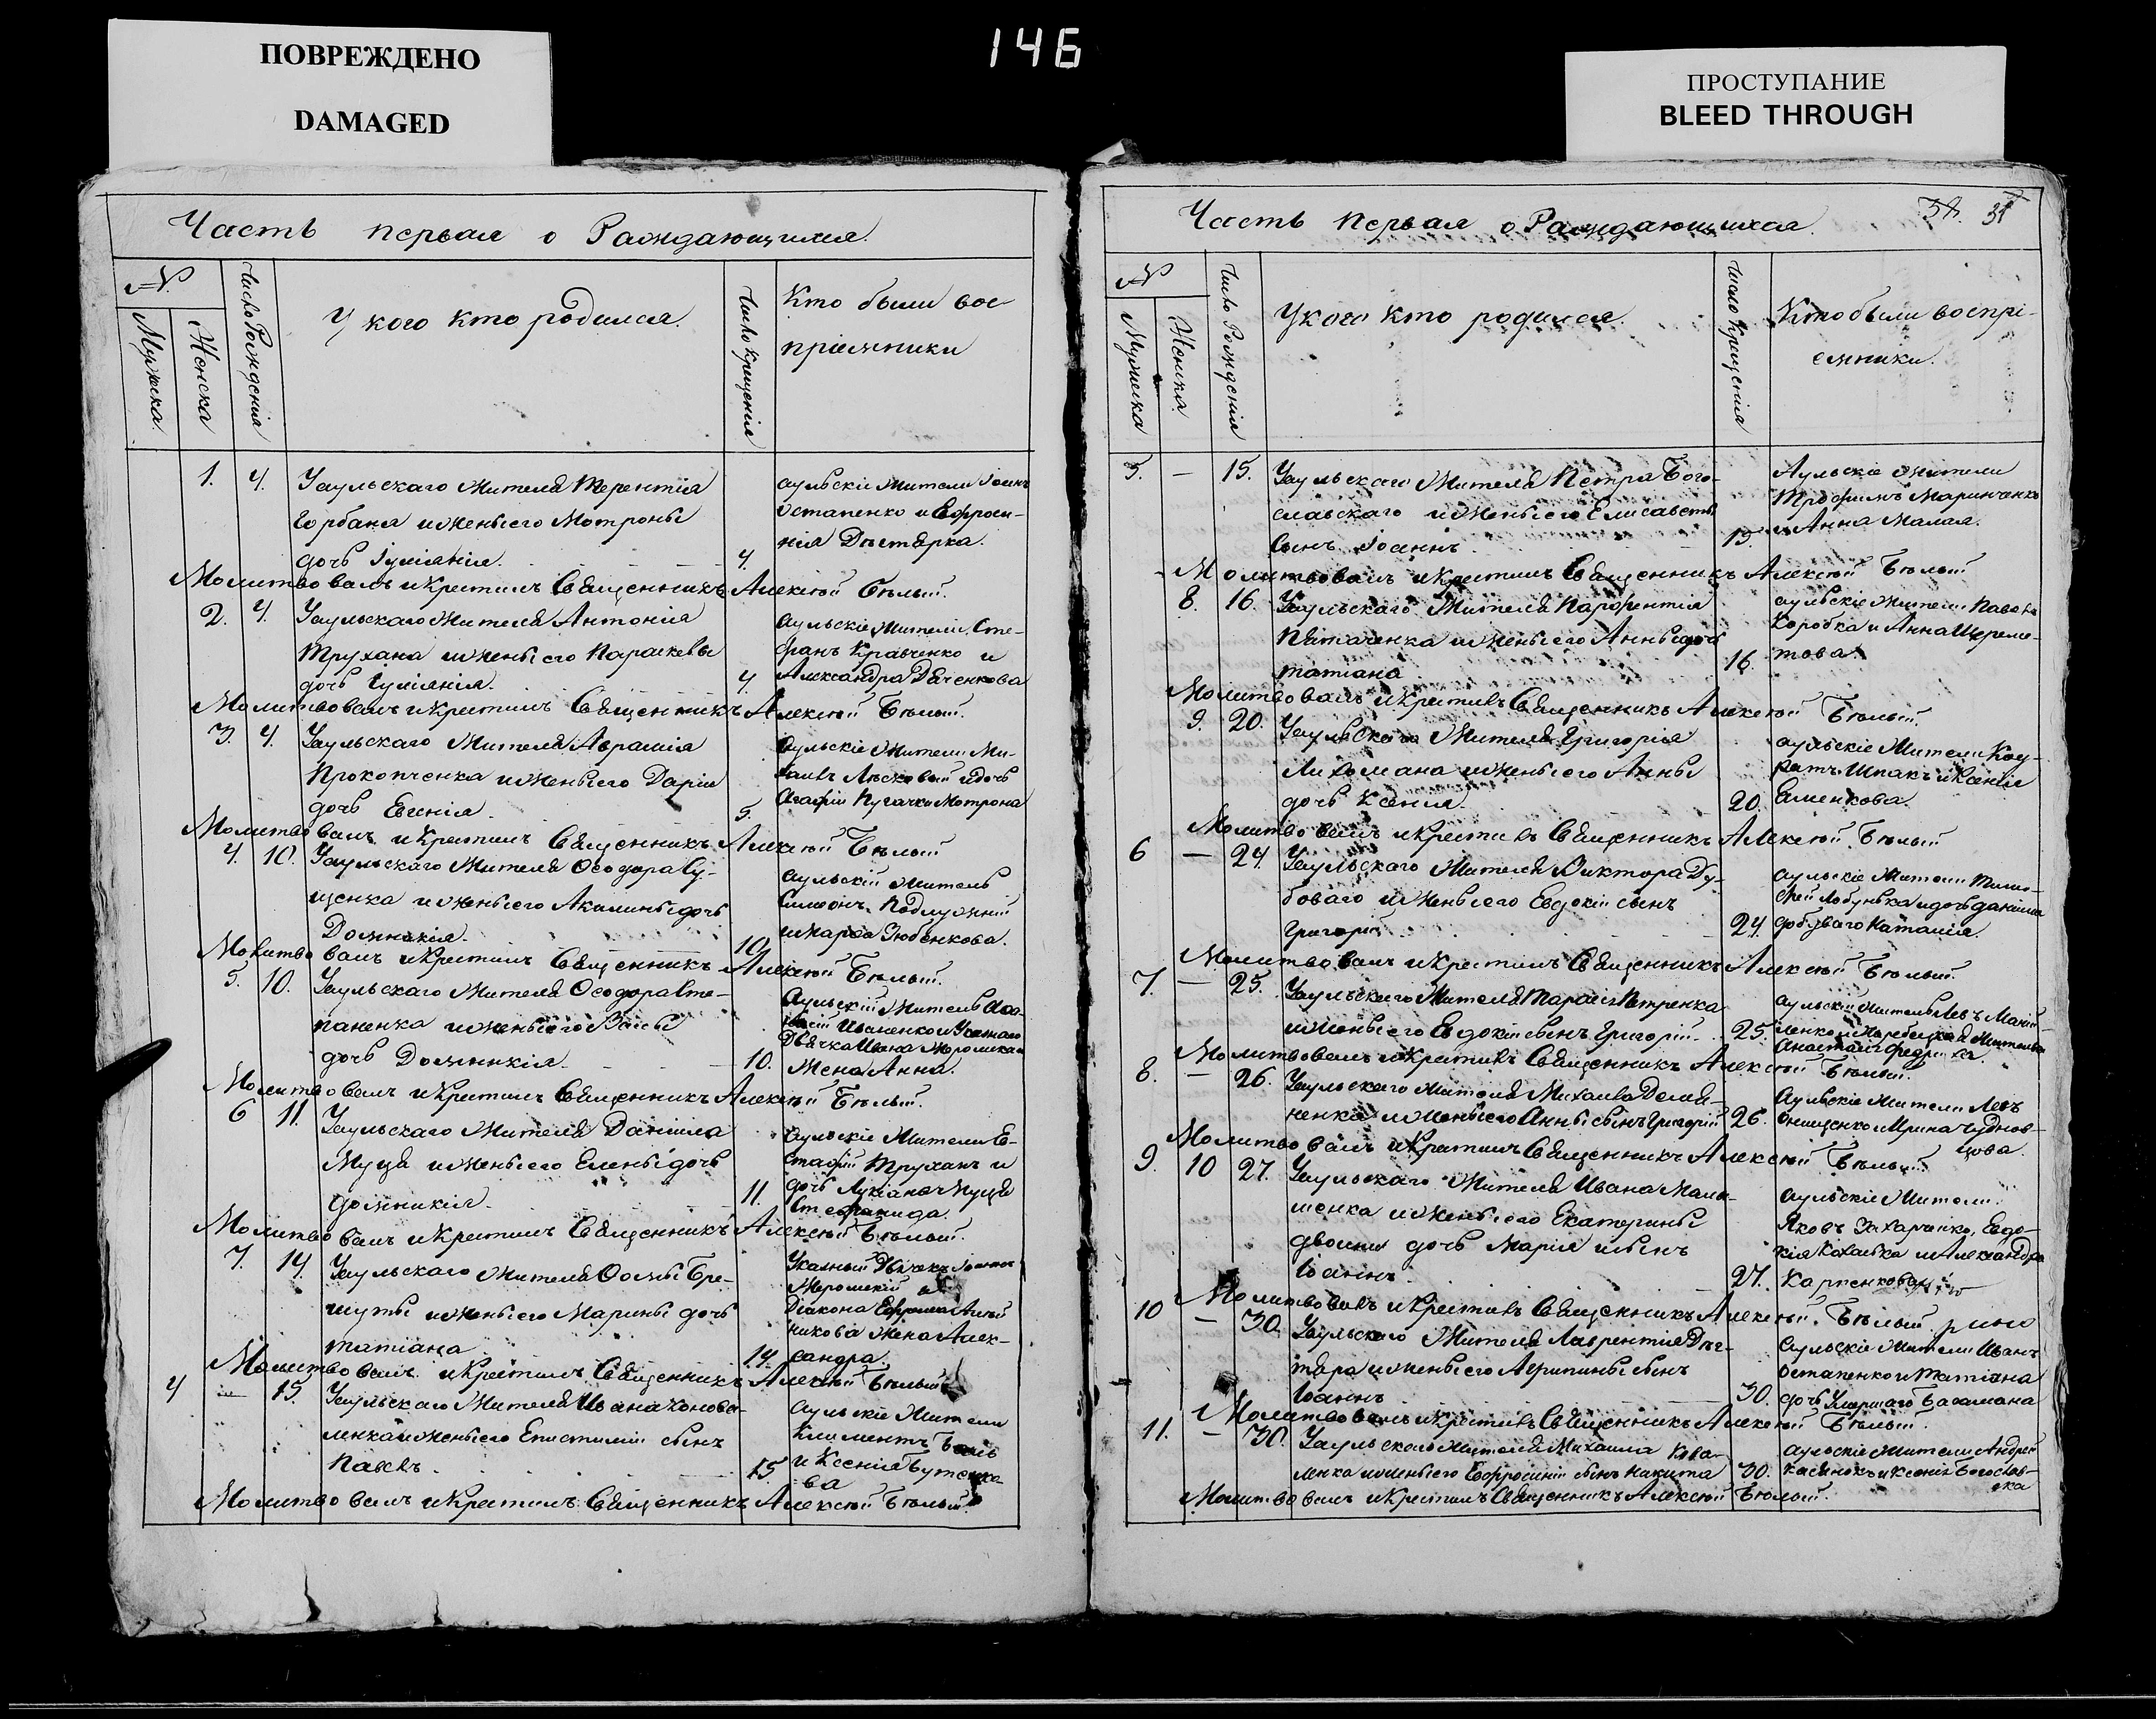 ПОВРЕЖДЕНО
DAMAGED
146
ПРОСТУПАНИЕ
BLEED THROUGH
Часть первая о Раждающихся.
№
Мужска.
Женска
Число Рожденія
У кого кто родился.
Число Крещенія
Кто были вос-
пріемники
1. 4. Уаульскаго Жителя Терентія
Горбаня и жены его Мотроны
дочь Іуліанія. 4.
аульскіе Жители Іоаннъ
Остапенко и Ефроси-
нія Дегтярка.
Молитвовалъ и крестилъ Священникъ Алексѣй Бѣлый.
2. 4. Уаульскаго Жителя Антонія
Трухана и жены его Параскевы
дочь Іуліанія. 4.
аульскіе Жители Сте-
фанъ Кравченко и
Александра Дяченкова
Молитвовалъ и крестилъ Священникъ Алексѣй Бѣлый.
3. 4. Уаульскаго Жителя Аврамія
Прокопченка и жены его Даріи
дочь Евгенія. 5.
аульскіе Жители Ми-
хаилъ Лѣсковый и дочь
Агафіи Пугачки Мотрона
Молитвовалъ и крестилъ Священникъ Алексѣй Бѣлый
4. 10. Уаульскаго Жителя Ѳеодора Су-
щенка и жены его Акилины дочь
Домникія. 10.
аульскій Житель
Симеонъ Подлужний
и Марѳа Зюбенкова.
Молитвовалъ и крестилъ Священникъ Алексѣй Бѣлый.
5. 10. Уаульскаго Жителя Ѳеодора Сте-
паненка и жены его Вассы
дочь Домникія. 10.
Аульскій Житель
Иваненко и Указнаго
Дьячка Ивана
Жена Анна.
Молитвовалъ и крестилъ Священникъ Алексѣй Бѣлый.
6 11. Уаульскаго Жителя Даніила
Муця и жены его Елены дочь
домникія. 11.
аульскіе Жители Ев-
стафій Труханъ и
дочь Лукіана Муця
Стефанида.
Молитвовалъ и крестилъ Священникъ Алексѣй Бѣлый.
7. 14. Уаульскаго Жителя Ѳомы Бре-
шуты и жены его Марины дочь
татіана 14.
Указный Дьячекъ Іоаннъ
и
Діакона
Жена Алек-
сандра.
Молитвовалъ и крестилъ Священникъ Алексѣй Бѣлый
4 — 15. Уаульскаго Жителя Ивана Конова-
ленка и жены его Епистиміи сынъ
Павелъ. 15
аульскіе Жители
Климентъ
и Ксенія Бутенко-
ва
Молитвовалъ и крестилъ Священникъ Алексѣй Бѣлый.
Часть первая о Раждающихся.
№
Мужеска
Женска.
Число Рожденія
У кого кто родился
Число Крещенія
Кто были воспрі-
емники.
5. — 15. Уаульскаго Жителя Петра Бого-
славскаго и жены его Елисаветы
Сынъ Іоаннъ 15.
Аульскіе жители
Трофимъ Маринченко
и Анна Малая.
Молитвовалъ и крестилъ Священникъ Алексѣй Бѣлый
8. 16. Уаульскаго Жителя Парфентія
Пятаченка и жены его Анны дочь
татіана 16.
аульскіе жители Павелъ
Коробка и Анна Щереме-
това.
Молитвовалъ и крестилъ Священникъ Алексѣй Бѣлый.
9. 20. Уаульскаго Жителя Григорія
Лихомана и жены его Анны
дочь Ксенія. 20.
аульскіе Жители Код-
ратъ Шпакъ и Ксенія
Еменкова.
Молитвовалъ и крестилъ Священникъ Алексѣй Бѣлый
6 — 24. Уаульскаго Жителя Виктора Ду-
боваго и жены его Евдокіи сынъ
Григорій. 24.
аульскіе Жители Тимо-
фей Лобунька и дочь даніила
Наталія.
Молитвовалъ и крестилъ Священникъ Алексѣй Бѣлый.
7. — 25. Уаульскаго Жителя Тарасія Петренка
и жены его Евдокіи сынъ Григорій. 25.
аульскій житель Левъ
Анастасія
Молитвовалъ и крестилъ Священникъ Алексѣй Бѣлый.
8. — 26. Уаульскаго Жителя Михаила Демя-
ненка и жены его Анны сынъ Григорій 26.
Аульскіе Жители Левъ
Онищенко и Ирина Чуднов-
цова.
Молитвовалъ и крестилъ Священникъ Алексѣй Бѣлый.
9. 10 27. Уаульскаго Жителя Ивана Мала-
шенка и жены его Екатерины
двойни дочь Марія и сынъ
Іоаннъ. 27.
аульскіе Жители
Яковъ Захарченко, Евдо-
кія Ковалька и Александра
Карпенкова
Молитвовалъ и крестилъ Священникъ Алексѣй Бѣлый
10 — 30. Уаульскаго Жителя Лаврентія Дег-
тяра и жены его Агрипины сынъ
Іоаннъ 30.
Аульскіе Жители Иванъ
Остапенко и Татіана
дочь Умершаго Басамана
Молитвовалъ и крестилъ Священникъ Алексѣй Бѣлый.
11. — 30. Уаульскаго Жителя Михаила Кова-
ленка и жены его Ефросиніи сынъ Никита 30.
аульскіе Жители Андрей
и Ксенія Богослав-
ска
Молитвовалъ и крестилъ Священникъ Алексѣй Бѣлый.